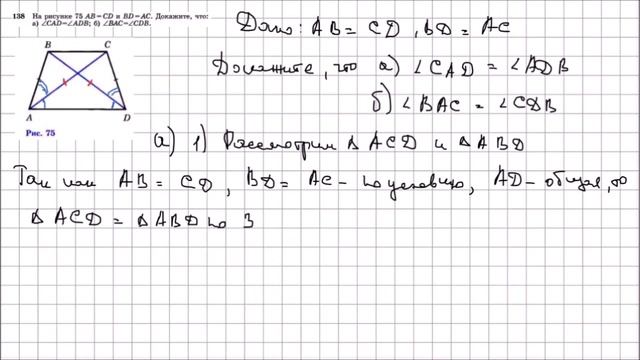 138 На рисунке 75 AB=CD и BD=AC. Докажите, что:
а) ∠CAD=∠ADB; б) ∠BAC=∠CDB.
B C
A D
Рис. 75
Дано: AB = CD, BD = AC
Докажите, что а) ∠CAD = ∠ADB
б) ∠BAC = ∠CDB
а) 1) Рассмотрим △ACD и △ABD
Так как AB = CD, BD = AC - по условию, AD - общая, то
△ACD = △ABD по 3